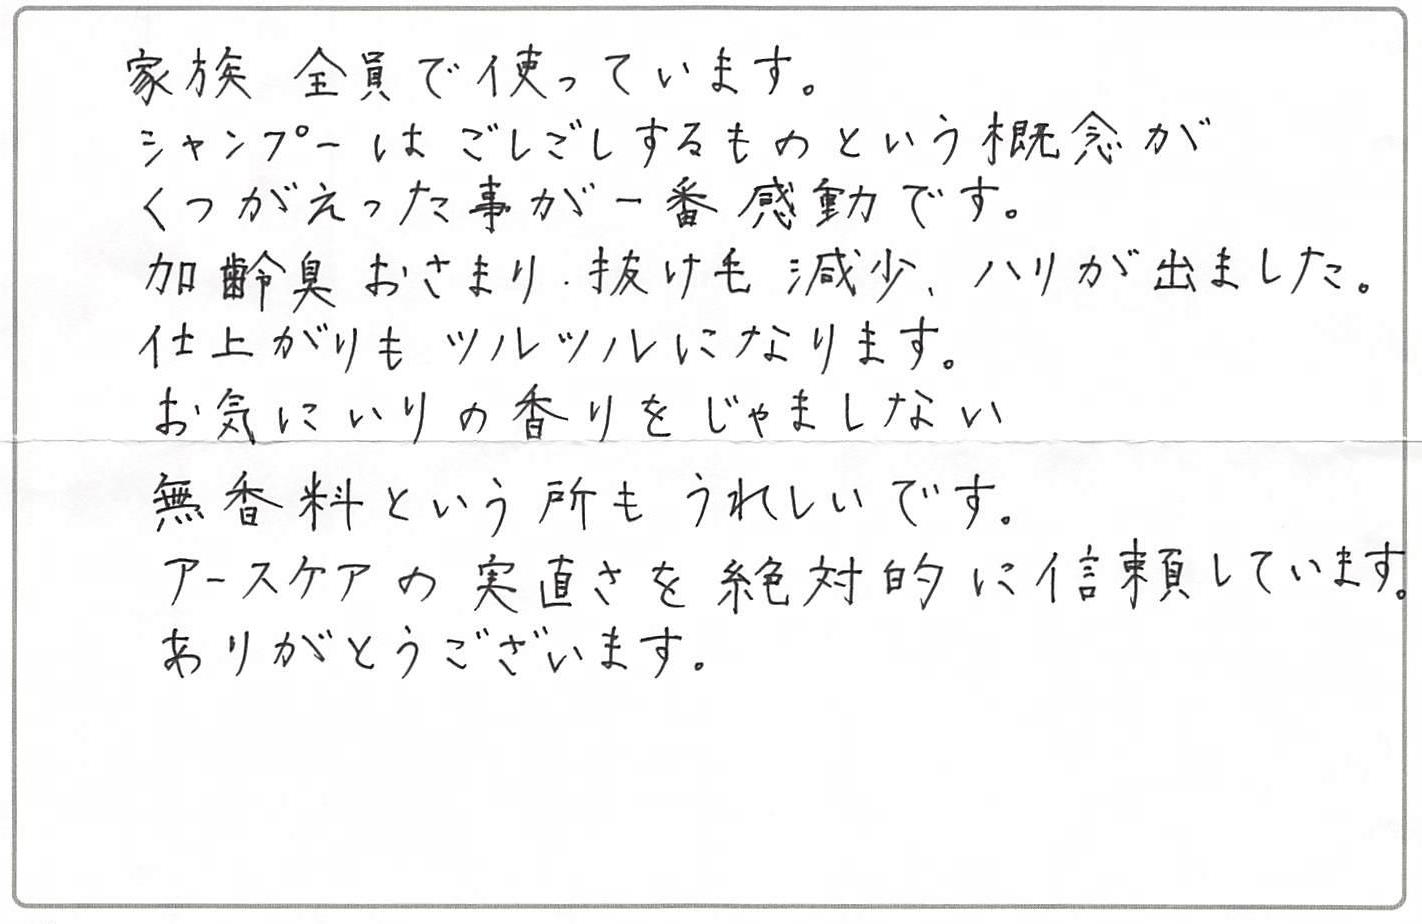 家族 全員で使っています。
シャンプーは ごしごしするものという概念が
くつがえった事が一番 感動です。
加齢臭 おさまり.抜け毛 減少、ハリが出ました。
仕上がりも ツルツルになります。
お気にいりの香りを じゃましない
無香料という所も うれしいです。
アースケアの実直さを 絶対的に信頼しています。
ありがとうございます。